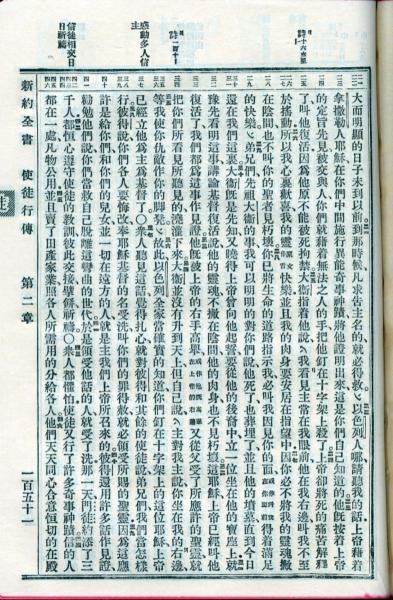 大而明顯的日子未到以前到那時候凡求告主名的就必得救以色列人哪請聽我的話上帝藉着
拿撒勒人耶穌在你們中間施行異能奇事神蹟將他證明出來這是你們自己知道的他既按着上帝
的定旨先見被交與人你們就藉着無法之人的手把他釘在十字架上殺了上帝卻將死的痛苦解釋
了叫他復活因為他原不能被死拘禁大衛指着他說我看見主常在我眼前他在我右邊叫我不至
於搖動所以我心裏歡喜我的靈快樂並且我的肉身要安居在指望中因你必不將我的靈魂撇
在陰間也不叫你的聖者見朽壞你已將生命的道路指示我必叫我因見你的面得着滿足
的快樂弟兄們先祖大衛的事我可以明明的對你們說他死了也葬埋了並且他的墳墓直到今日
還在我們這裏大衛既是先知又曉得上帝曾向他起誓要從他的後裔中立一位坐在他的寶座上就
豫先看明這事講論基督復活說他的靈魂不撇在陰間他的肉身也不見朽壞這耶穌上帝已經叫他
復活了我們都為這事作見證他既被上帝的右手高舉又從父受了所應許的聖靈就
把你們所看見所聽見的澆灌下來大衛並沒有升到天上但自己說主對我主說你坐在我的右邊
等我使你仇敵作你的腳凳故此以色列全家當確實的知道你們釘在十字架上的這位耶穌上帝
已經立他為主為基督了衆人聽見這話覺得扎心就對彼得和其餘的使徒說弟兄們我們當怎樣
感動多人信主
行彼得說你們各人要悔改奉耶穌基督的名受洗叫你們的罪得赦就必領受所賜的聖靈因為這應
許是給你們和你們的兒女並一切在遠方的人就是主我們上帝所召來的彼得還用許多話作見證
勸勉他們說你們當救自己脫離這彎曲的世代於是領受他話的人就受了洗那一天門徒約添了三
信徒相交日日祈禱
千人都恆心遵守使徒的教訓彼此交接擘餅祈禱衆人都懼怕使徒又行了許多奇事神蹟信的人
都在一處凡物公用並且賣了田產家業照各人所需用的分給各人他們天天同心合意恆切的在殿
新約全書 使徒行傳 第二章 一百五十一